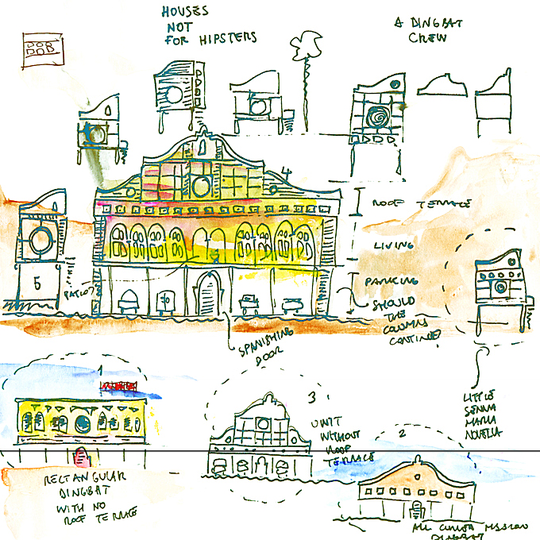 HOUSES
NOT
FOR HIPSTERS
A DINGBAT
CREW
4
ROOF TERRACE
LIVING
5
PATIO?
PARKING
SHOULD
THE
COLUMNS
CONTINUE?
SPANISHING
DOOR
1
3
UNIT
WITHOUT
ROOF
TERRACE
2
LITTLE
MARIA
NOVELLA
RECTANGULAR
DINGBAT
WITH NO
ROOF TERRACE
ALL
MISSION
DINGBAT